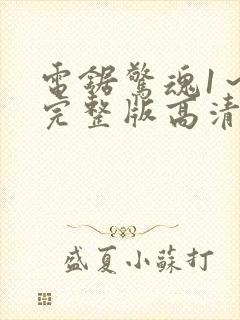 電鋸驚魂1
完整版高清
盛夏小蘇打